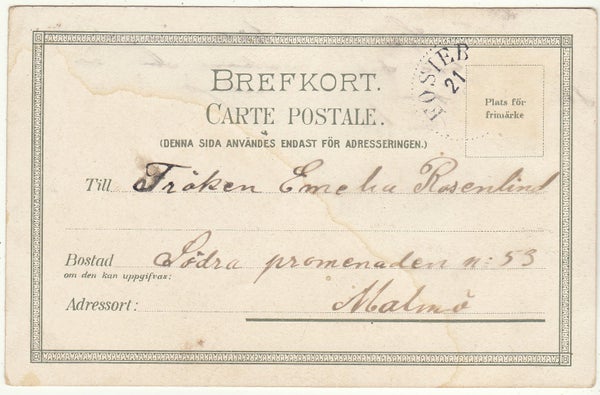 BREFKORT.
CARTE POSTALE.
(DENNA SIDA ANVÄNDES ENDAST FÖR ADRESSERINGEN.)
Plats för
frimärke
21
Till Fröken Emelia Rosenlind
Bostad Södra promenaden n: 53
om den kan uppgifvas:
Adressort: Malmö